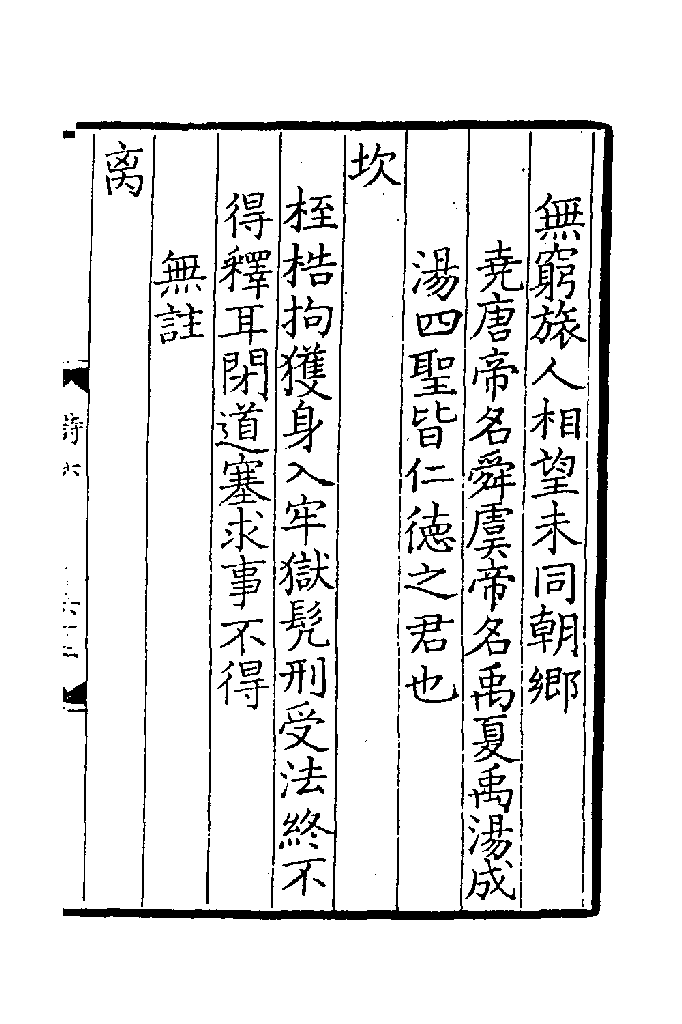 無窮旅人相望未同朝鄉
堯唐帝名舜虞帝名禹夏禹湯成
湯四聖皆仁德之君也
坎
桎梏拘獲身入牢獄髡刑受法終不
得釋耳閉道塞求事不得
無註
离